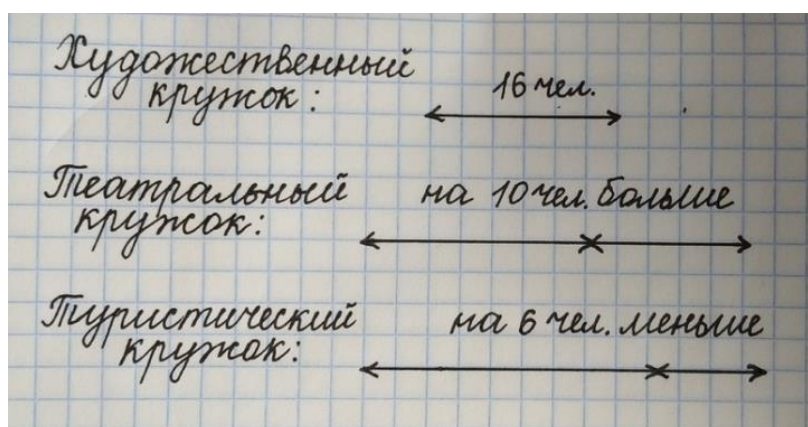 Художественный
кружок:
16 чел.
Театральный
кружок:
на 10 чел. больше
Туристический
кружок:
на 6 чел. меньше